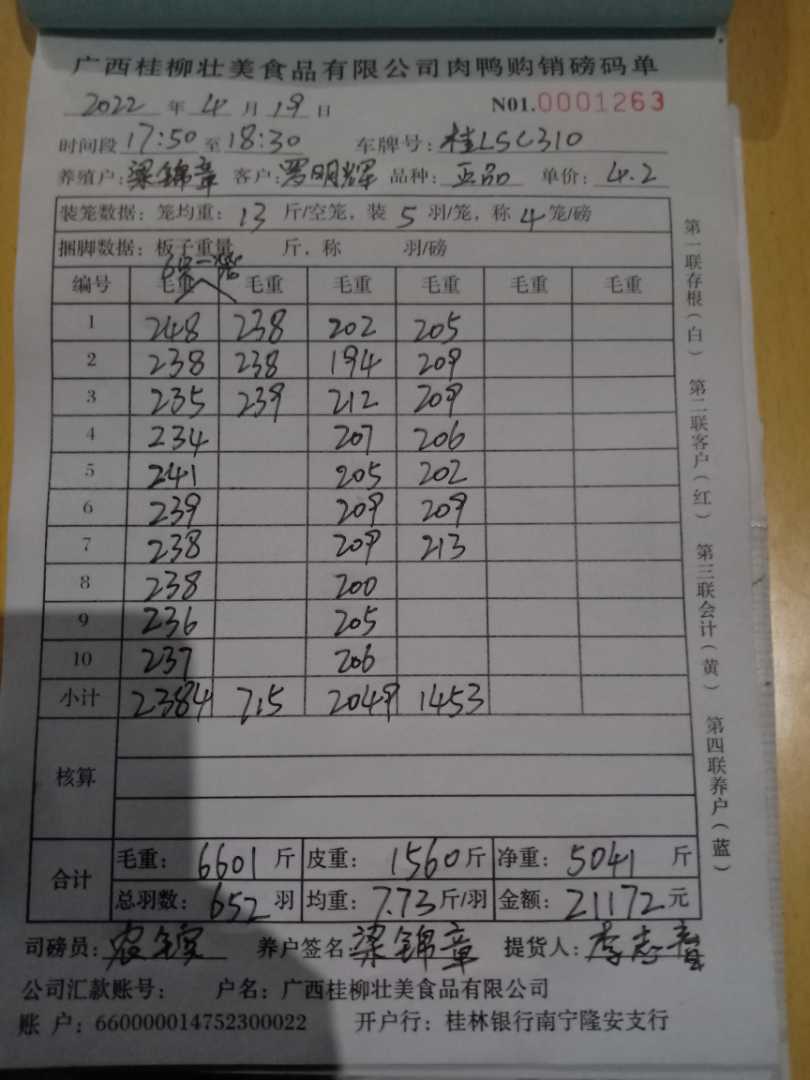 广西桂柳壮美食品有限公司肉鸭购销磅码单
2022 年 4 月 19 日 N01.0001263
时间段 17:50 至 18:30 车牌号: 桂LSC310
养殖户: 梁锦章 客户: 罗明辉 品种: 正品 单价: 4.2
装笼数据: 笼均重: 13 斤/空笼, 装 5 羽/笼, 称 4 笼/磅
捆脚数据: 板子重量 斤, 称 羽/磅
6只一笼
编号 毛重 毛重 毛重 毛重 毛重 毛重
1 248 238 202 205
2 238 238 194 209
3 235 239 212 209
4 234 207 206
5 241 205 202
6 239 209 209
7 238 209 213
8 238 200
9 236 205
10 237 206
小计 2384 715 2049 1453
核算
合计 毛重: 6601 斤 皮重: 1560 斤 净重: 5041 斤
总羽数: 652 羽 均重: 7.73 斤/羽 金额: 21172 元
司磅员: 养户签名: 梁锦章 提货人: 李志
公司汇款账号: 户名: 广西桂柳壮美食品有限公司
账 户: 660000014752300022 开户行: 桂林银行南宁隆安支行
第一联存根(白) 第二联客户(红) 第三联会计(黄) 第四联养户(蓝)